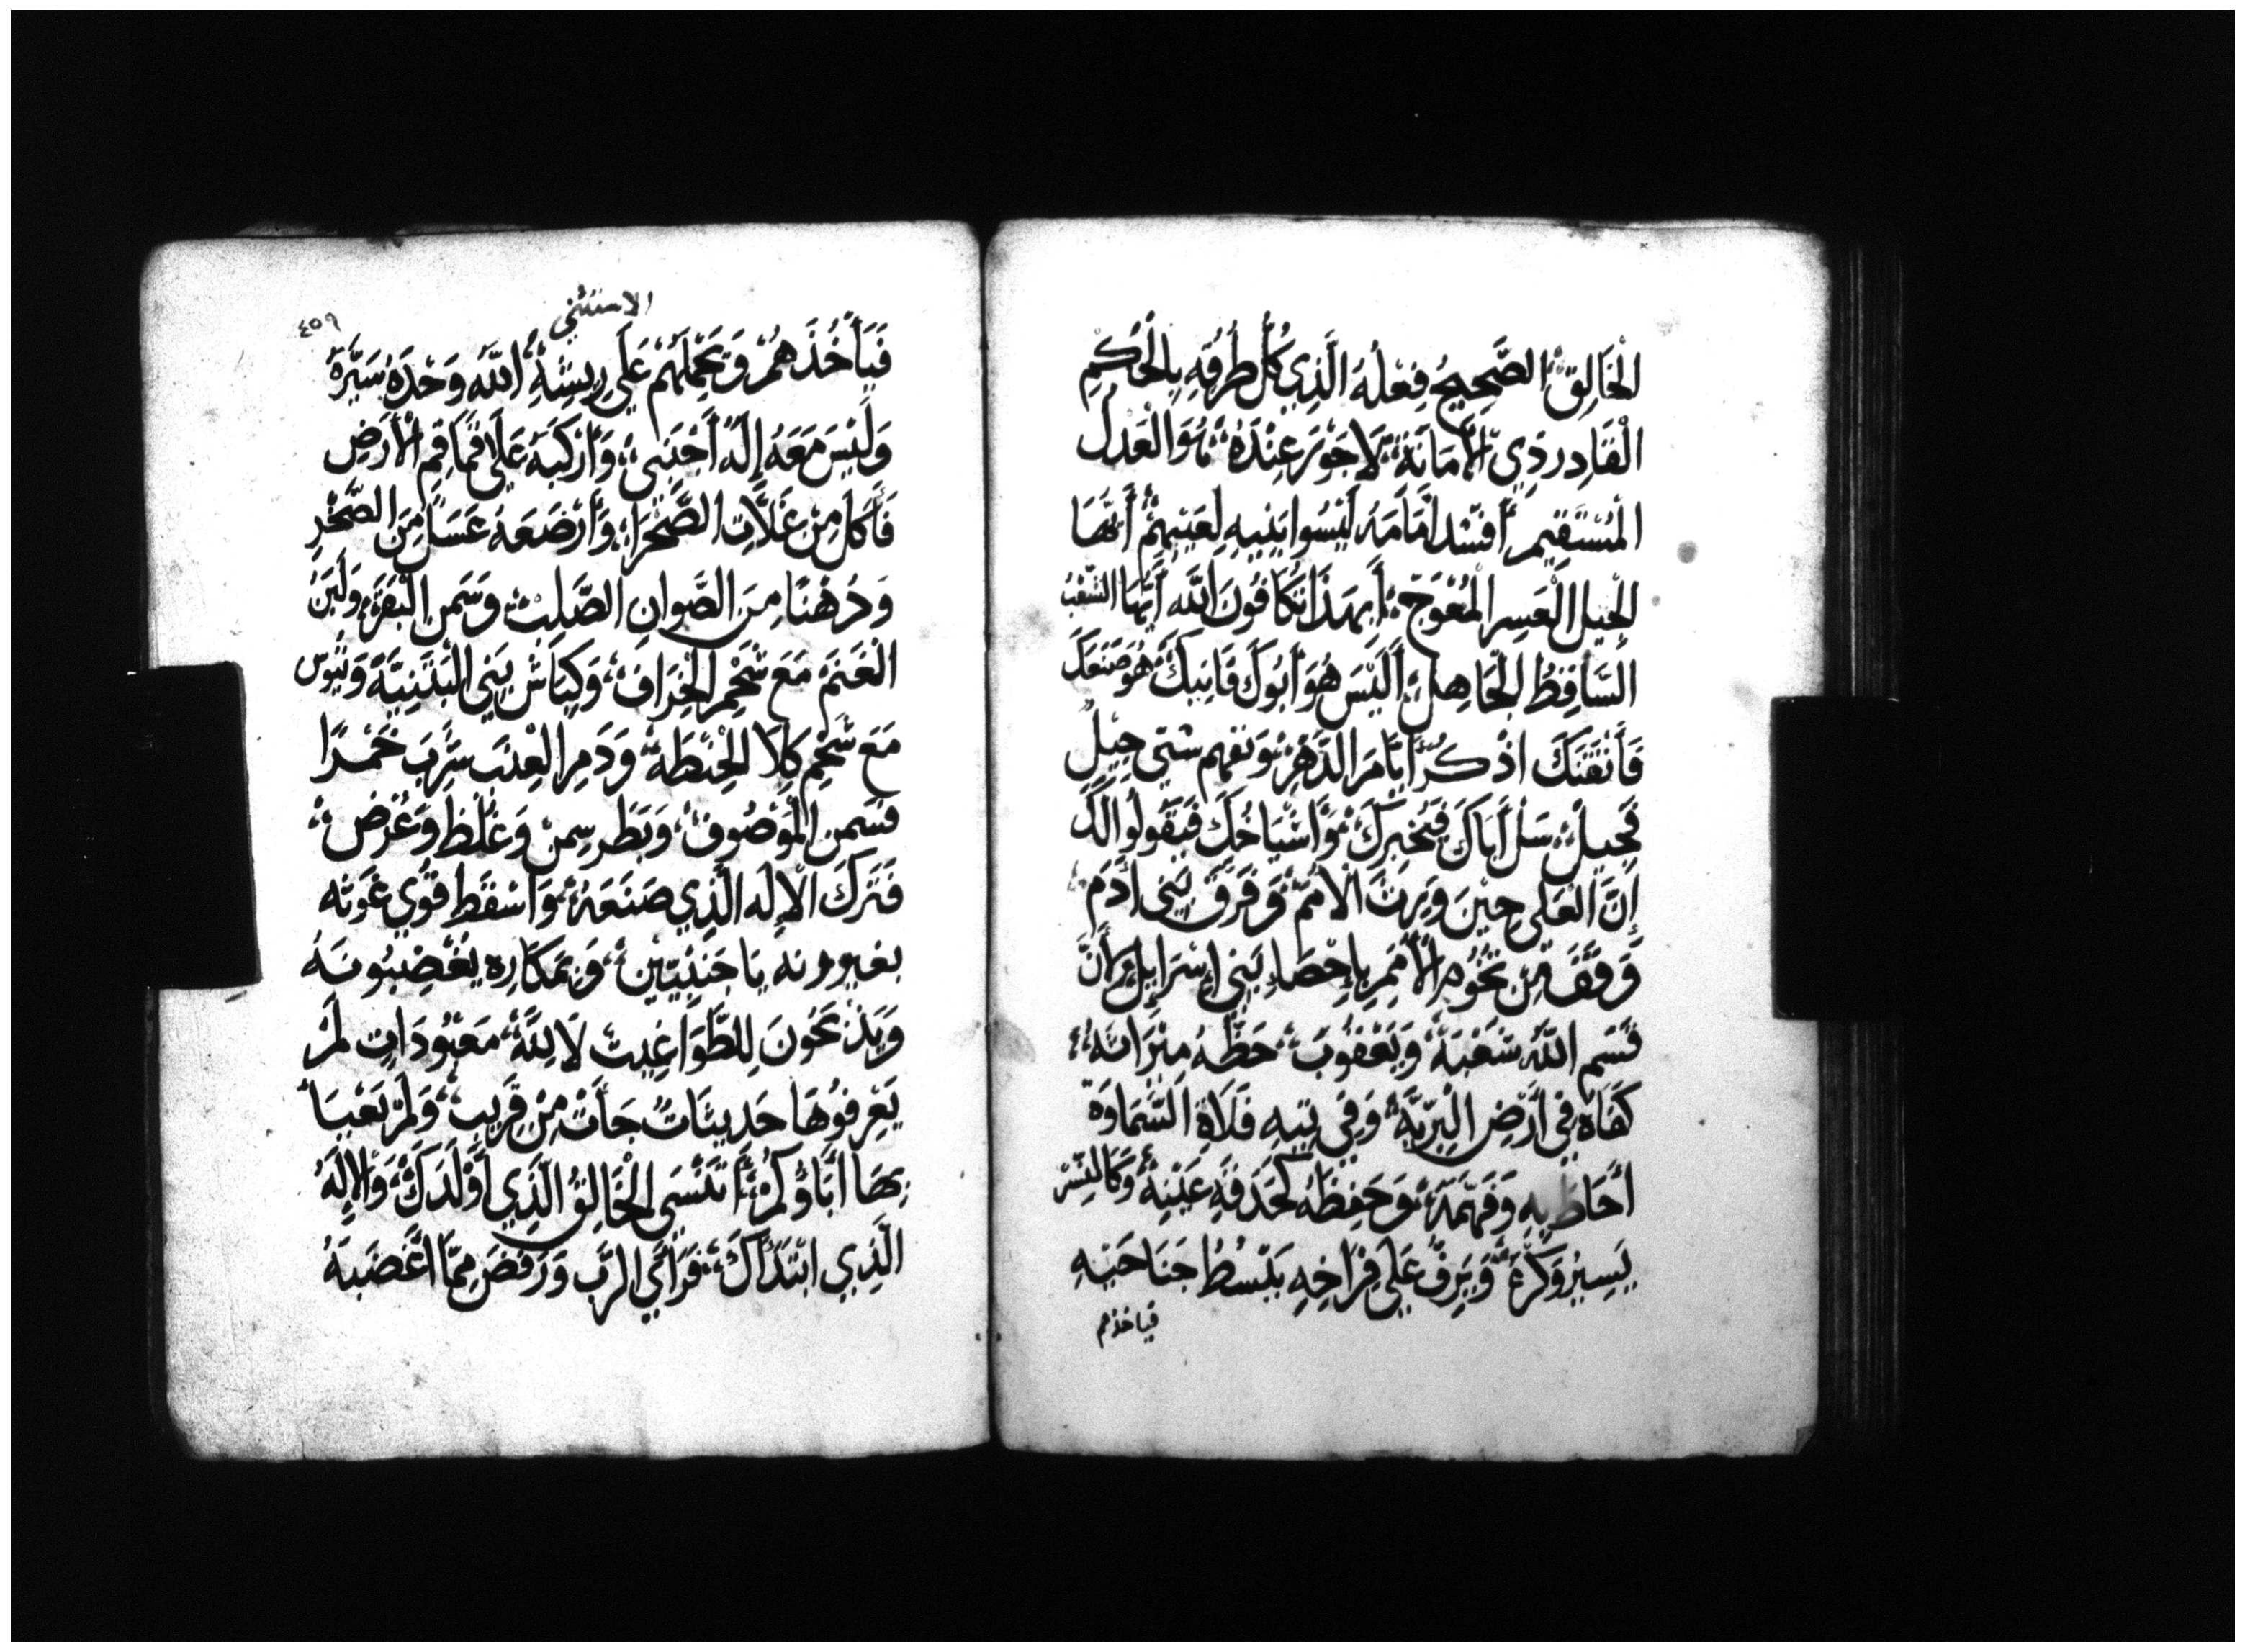 الْخَالِقُ الصَّحِيحُ فِعْلُهُ الَّذِي كُلُّ طُرُقِهِ بِالْحُكْمِ
الْقَادِر ذِي الْأَمَانَةِ لَا جَوْرَ عِنْدَهُ هُوَ الْعَدْلُ
الْمُسْتَقِيم أَفْسَدَ أَمَامَهُ لَيْسُوا بَنِيهِ لِعَيْبِهِمْ أَيُّهَا
الْجِيلُ الْعَسِر الْمُعْوَج أَبِهَذَا تُكَافُونَ اللَّه أَيُّهَا الشَّعْبُ
السَّاقِطُ الْجَاهِلُ أَلَيْسَ هُوَ أَبُوكَ قَانِيكَ هُوَ صَنَعَكَ
فَأَتْقَنَكَ اذْكُرْ أَيَّامَ الدَّهْرِ وَتفهم سِنِي جِيلٍ
فَجِيلٍ سَلْ أَبَاكَ فَيُخْبِرَكَ وَأَشْيَاخُكَ فَيَقُولُوا لَكَ
إِنَّ الْعَلِي حِينَ وَرث الْأُمَم وَفَرَّقَ بَنِي أَدَم
وَقَفَ مِن تُخُوم الْأُمَمِ بِإِحْصَاءِ بَنِي إِسْرَايِيل وَأَنَّ
قَسْم اللَّهِ شَعْبَهُ وَيَعْقُوبَ حَظُّهُ مِيْرَاثَهُ
كَفَاهُ فِي أَرْضِ الْبَرِّيَّة وَفِي تِيهِ فَلَاةِ السَّمَاوَة
أَحَاطَ بِهِ وَفَهَّمَهُ وَحَفِظَهُ كَحَدَقَةِ عَيْنِهِ وَكَالنِّسْر
يَسِيرُ وَكْرهُ وَيَرِفُّ عَلَى فِرَاخِهِ يَبْسُطُ جَنَاحَيْهِ
فياخذهم
الاستثني
٤٥٩
فَيَأْخُذَهُمْ وَيَحْمِلَهُمْ عَلَى رِيشِهِ اللَّه وَحْدَهُ سَيَّرَهُ
وَلَيْسَ مَعَهُ إِلَهٌ أَجْنَبِي وَأَرْكَبَهُ عَلَى قَمَاقِمِ الْأَرْضِ
فَأَكَلَ مِنْ غَلَّاتِ الصَّحْرَاءِ وَأَرْضَعَهُ عَسَلاً مِنَ الصَّخْرِ
وَدُهْنًا مِنَ الصَّوانِ الصَّلب وَسَمن الْبَقَرِ وَلَبَنُ
الْغَنَمِ مَعَ شَحْمِ الْخِرَاف وَكِبَاش بَنِي الْبَثَنِيَّة وَتُيُوس
مَعَ شَحْمِ كِلَا الْحِنْطَة وَدَم الْعِنَب شَرِبَ خَمْرًا
فَسَمن الْمَوْصُوف وَبَطَر سِمن وَغَلُظ وَعَرُض
فَتَرَكَ الْإِلَه الَّذِي صَنَعَهُ وَأَسْقَطَ قُوي غَوثه
بغيرونه بِأَجْنَبِيِّينَ وَبِمَكَارِه يُغْضِبُونَهُ
وَيَذْبَحُونَ لِلطَّوَاغِيت لَا لِلَّهِ مَعْبُودَاتٍ لَمْ
يَعْرِفُوهَا حَدِيثَاتٌ جَاءَتْ مِنْ قَرِيبٍ وَلَمْ يَعْبَا
بِهَا أَبَاؤُكُمْ أَتَنْسَى الْخَالِقُ الَّذِي أَوْلَدَكَ وَالْإِلَهُ
الَّذِي ابْتَدَأَكَ فَرَأَي الرَّب وَرَفَضَ مِمَّا أَغْضَبَهُ